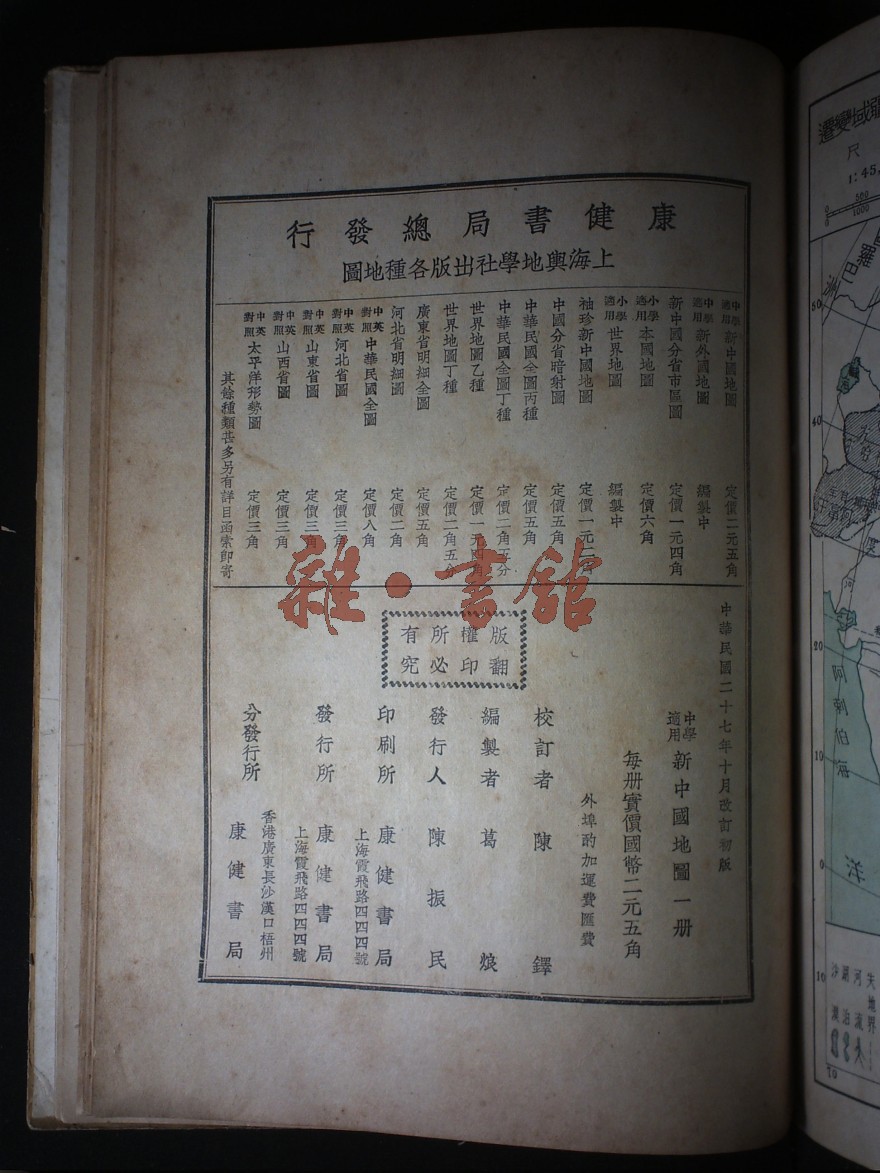 康健書局總發行
上海輿地學社出版各種地圖
中學適用 新中國地圖 定價二元五角
中學適用 新外國地圖 編製中
新中國分省市區圖 定價一元四角
小學適用 本國地圖 定價六角
小學適用 世界地圖 編製中
袖珍新中國地圖 定價一元二角
中國分省暗射圖 定價五角
中華民國全圖丙種 定價五角
中華民國全圖丁種 定價二角五分
世界地圖乙種 定價一元四角
世界地圖丁種 定價二角五分
廣東省明細全圖 定價五角
河北省明細圖 定價二角
中英對照 中華民國全圖 定價八角
中英對照 河北省圖 定價三角
中英對照 山東省圖 定價三角
中英對照 山西省圖 定價三角
中英對照 太平洋形勢圖 定價三角
其餘種類甚多另有詳目函索即寄
版權所有
翻印必究
中華民國二十七年十月改訂初版
中學適用 新中國地圖一册
每册實價國幣二元五角
外埠酌加運費匯費
校訂者 陳鐸
編製者 葛烺
發行人 陳振民
印刷所 康健書局
上海霞飛路四四四號
發行所 康健書局
上海霞飛路四四四號
分發行所 康健書局
香港廣東長沙漢口梧州
雜·書館
域變遷
尺
1:45,
0 500
0 1000
羅
巴
洲
50
40
20
10
0
10
阿剌伯海
洋
失地界
河流
湖泊
沙漠